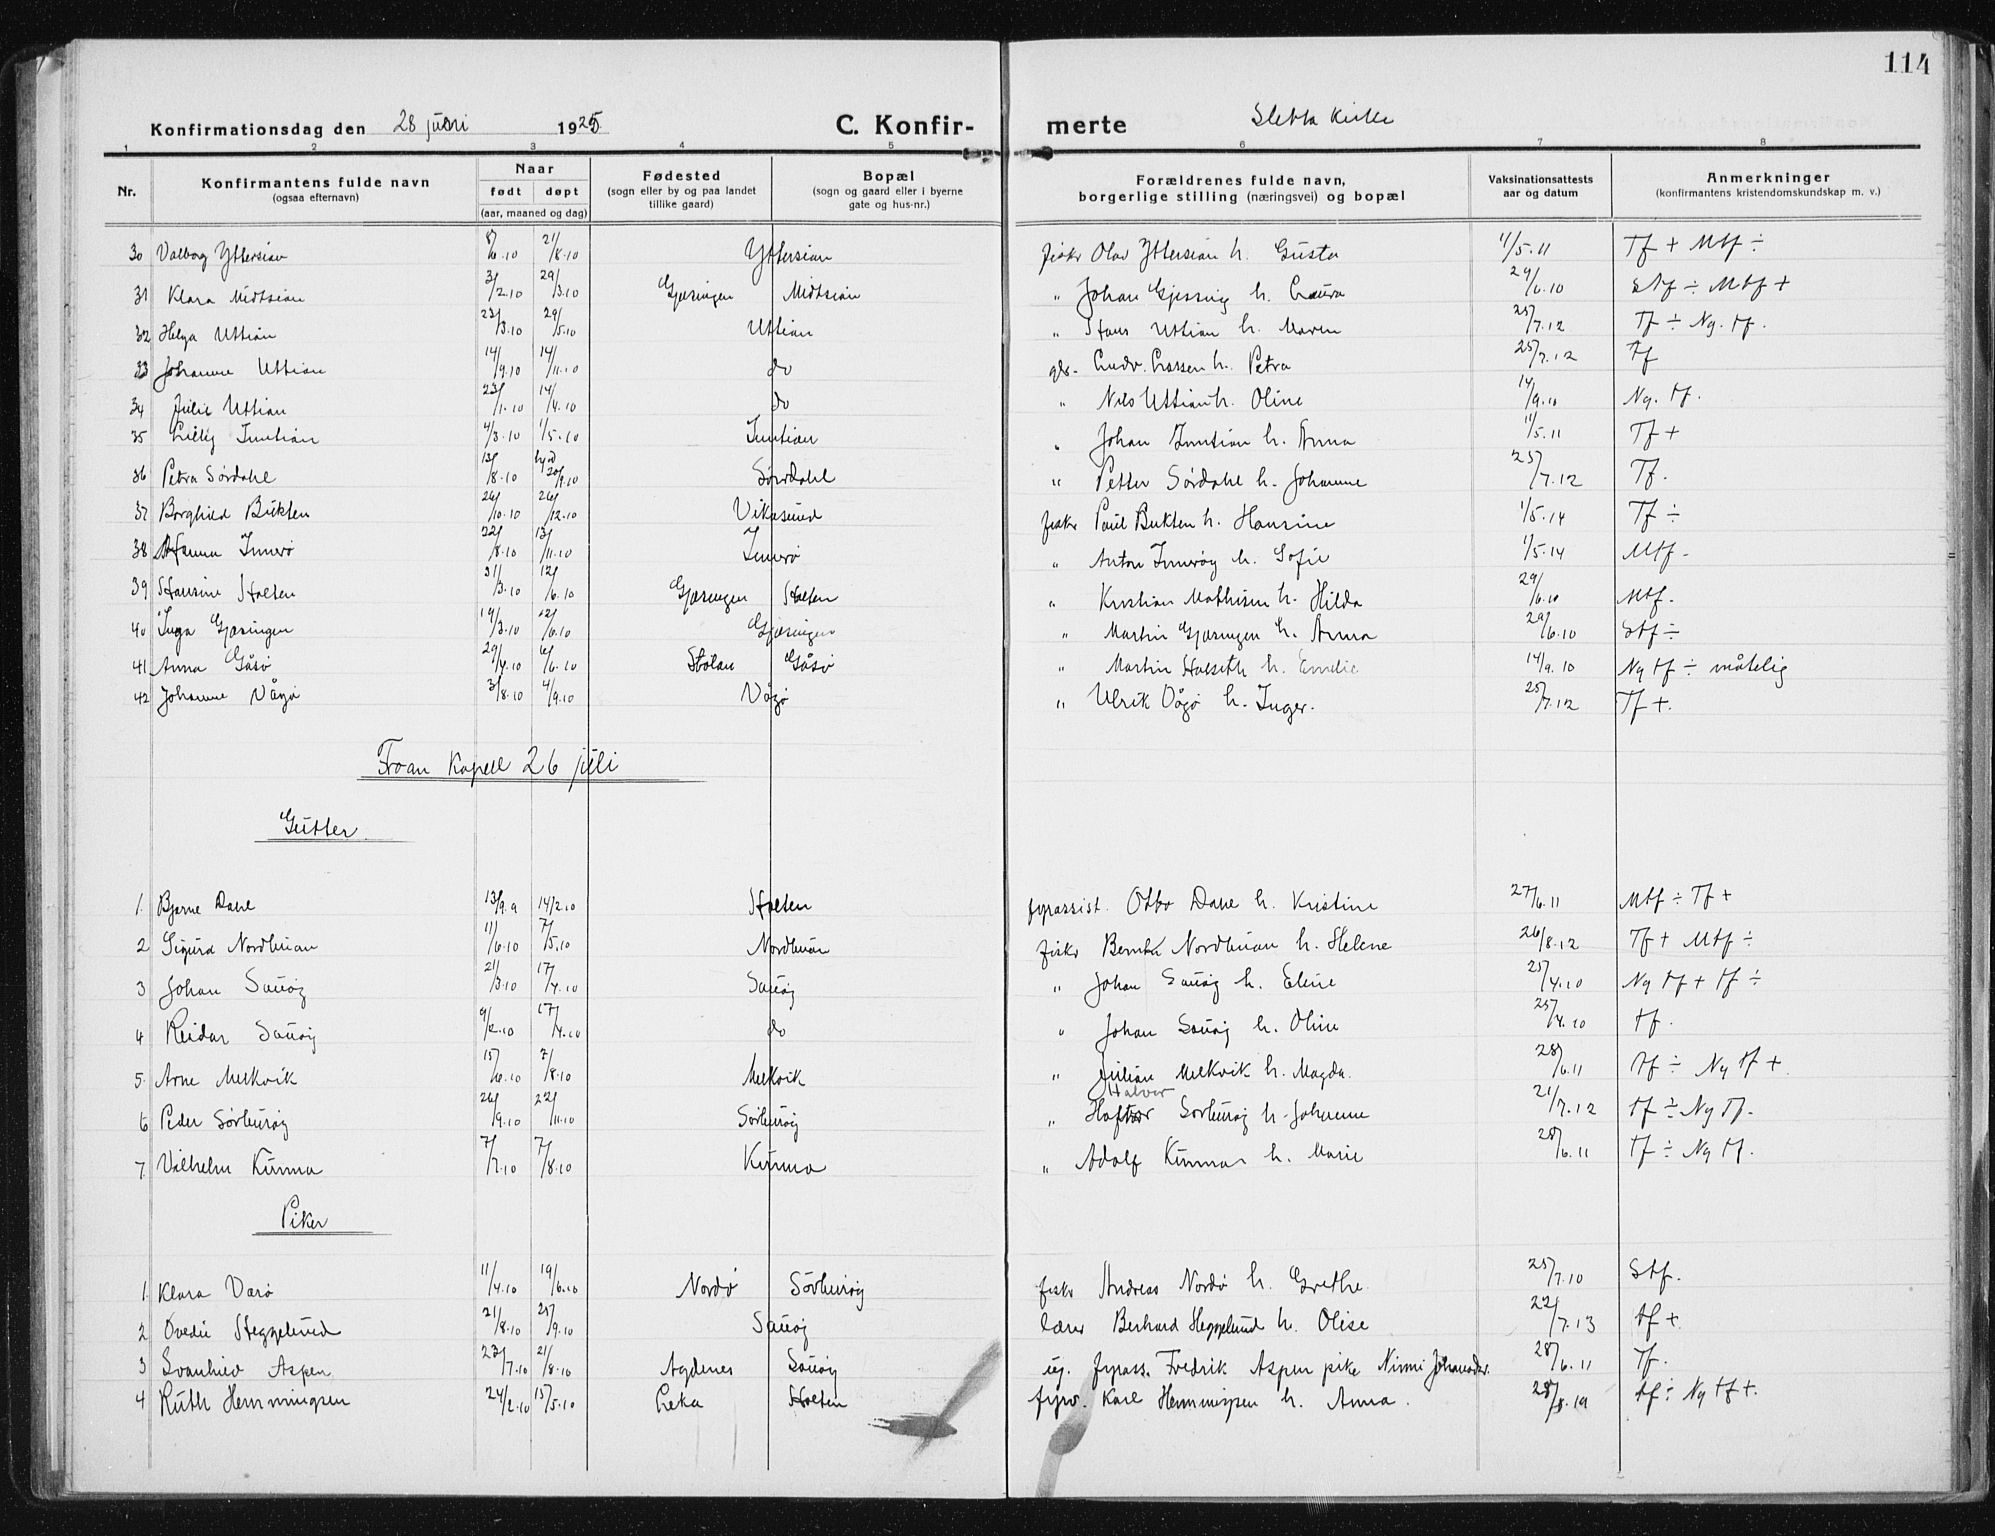 114
Konfirmationsdag den 28 juni 1925 C. Konfir- merte Sletta Kirke
1 2 3 4 5 6 7 8
Nr. Konfirmantens fulde navn (ogsaa efternavn) Naar født døpt (aar, maaned og dag) Fødested (sogn eller by og paa landet tillike gaard) Bopæl (sogn og gaard eller i byerne gate og hus-nr.) Forældrenes fulde navn, borgerlige stilling (næringsvei) og bopæl Vaksinationsattests aar og datum Anmerkninger (konfirmantens kristendomskundskap m. v.)
30 Valborg Yttersian 8/6.10 21/8.10 Yttersian fisker Olav Yttersian h. Gusta 11/5.11 Tf + Mtf ÷
31 Klara Midtsian 3/2.10 29/3.10 Gjæsingen Midtsian " Johan Gjessing h. Laura 29/6.10 Stf ÷ Mtf +
32 Helga Uttian 23/3.10 29/5.10 Uttian " Hans Uttian h. Maren 25/7.12 Tf ÷ Ng. tf.
33 Johanne Uttian 14/9.10 14/11.10 do Ludv. Larsen h. Petra 25/7.12 Tf
34 Julie Uttian 23/1.10 14/4.10 do " Nils Uttian h. Oline 14/9.10 Ng. tf.
35 Lilly Inntian 4/3.10 1/5.10 Inntian " Johan Inntian h. Anna 11/5.11 Tf +
36 Petra Sørdahl 13/8.10 20/9.10 Sørdahl " Petter Sørdahl h. Johanne 25/7.12 Tf.
37 Borghild Bukten 26/10.10 26/12.10 Vikasund fisker Paul Bukten h. Hansine 1/5.14 Tf ÷
38 Innerø 22/8.10 13/11.10 Innerø " Anton Innerøy h. Sofie 1/5.14 Mtf -
39 Hansine Holten 31/3.10 12/6.10 Gjæsingen Holten " Kristian Mathisen h. Hilda 29/6.10 Mtf.
40 Inga Gjæsingen 19/3.10 12/6.10 Gjæsingen " Martin Gjæsingen h. Anna 29/6.10 Stf ÷
41 Anna Gåsø 29/4.10 6/6.10 Stolan Gåsø " Martin Halseth h. Emelie 14/9.10 Ng tf ÷ måtelig
42 Johanne Vågø 3/8.10 4/9.10 Vågø " Ulrik Vågø h. Inger. 25/7.12 Tf +.
Froan Kapell 26 juli
Gutter
1. Bjarne Dahl 13/9.9 14/2.10 Holten fyrassist. Otto Dahl h. Kristine 27/6.11 Mtf ÷ Tf +
2 Sigurd Nordbuan 11/6.10 7/5.10 Nordbuan fisker Nordbuan h. Helene 26/8.12 Tf + Mtf ÷
3 Johan Sauøy 21/3.10 17/4.10 Sauøy " Johan Sauøy h. Eline 25/4.10 Ng tf + tf ÷
4 Reidar Sauøy 9/2.10 17/4.10 do " Johan Sauøy h. Oline 25/4.10 tf.
5. Arne Melkvik 15/6.10 7/8.10 Melkvik " Julian Melkvik h. Magda. 28/6.11 tf ÷ Ng tf +.
Halvor
6 Peder Sørburøy 26/9.10 22/11.10 Sørburøy " Sørburøy h. Johanne 21/7.12 tf ÷ Ng tf.
7. Vilhelm Kunna 7/7.10 7/8.10 Kunna " Adolf Kunna h. Marie 28/6.11 tf ÷ Ng tf.
Piker
1. Klara Varø 11/4.10 19/6.10 Nordø Sørburøy fisker Andreas Nordø h. Grethe. 25/7.10 Stf.
2 Ovedie Heggelund 21/8.10 25/9.10 Sauøy lærer Berhard Heggelund h. Olise 22/7.13 tf +.
3 Svanhild Aspen 23/7.10 21/8.10 Agdenes Sauøy ug. fyrass. Fredrik Aspen pike Ninni Johansdr. 28/6.11 Tf.
4 Ruth Hemmingsen 24/2.10 15/5.10 Leka Holten fyrv. Karl Hemmingsen h. Anna. 28/8.19 tf ÷ Ng tf +.